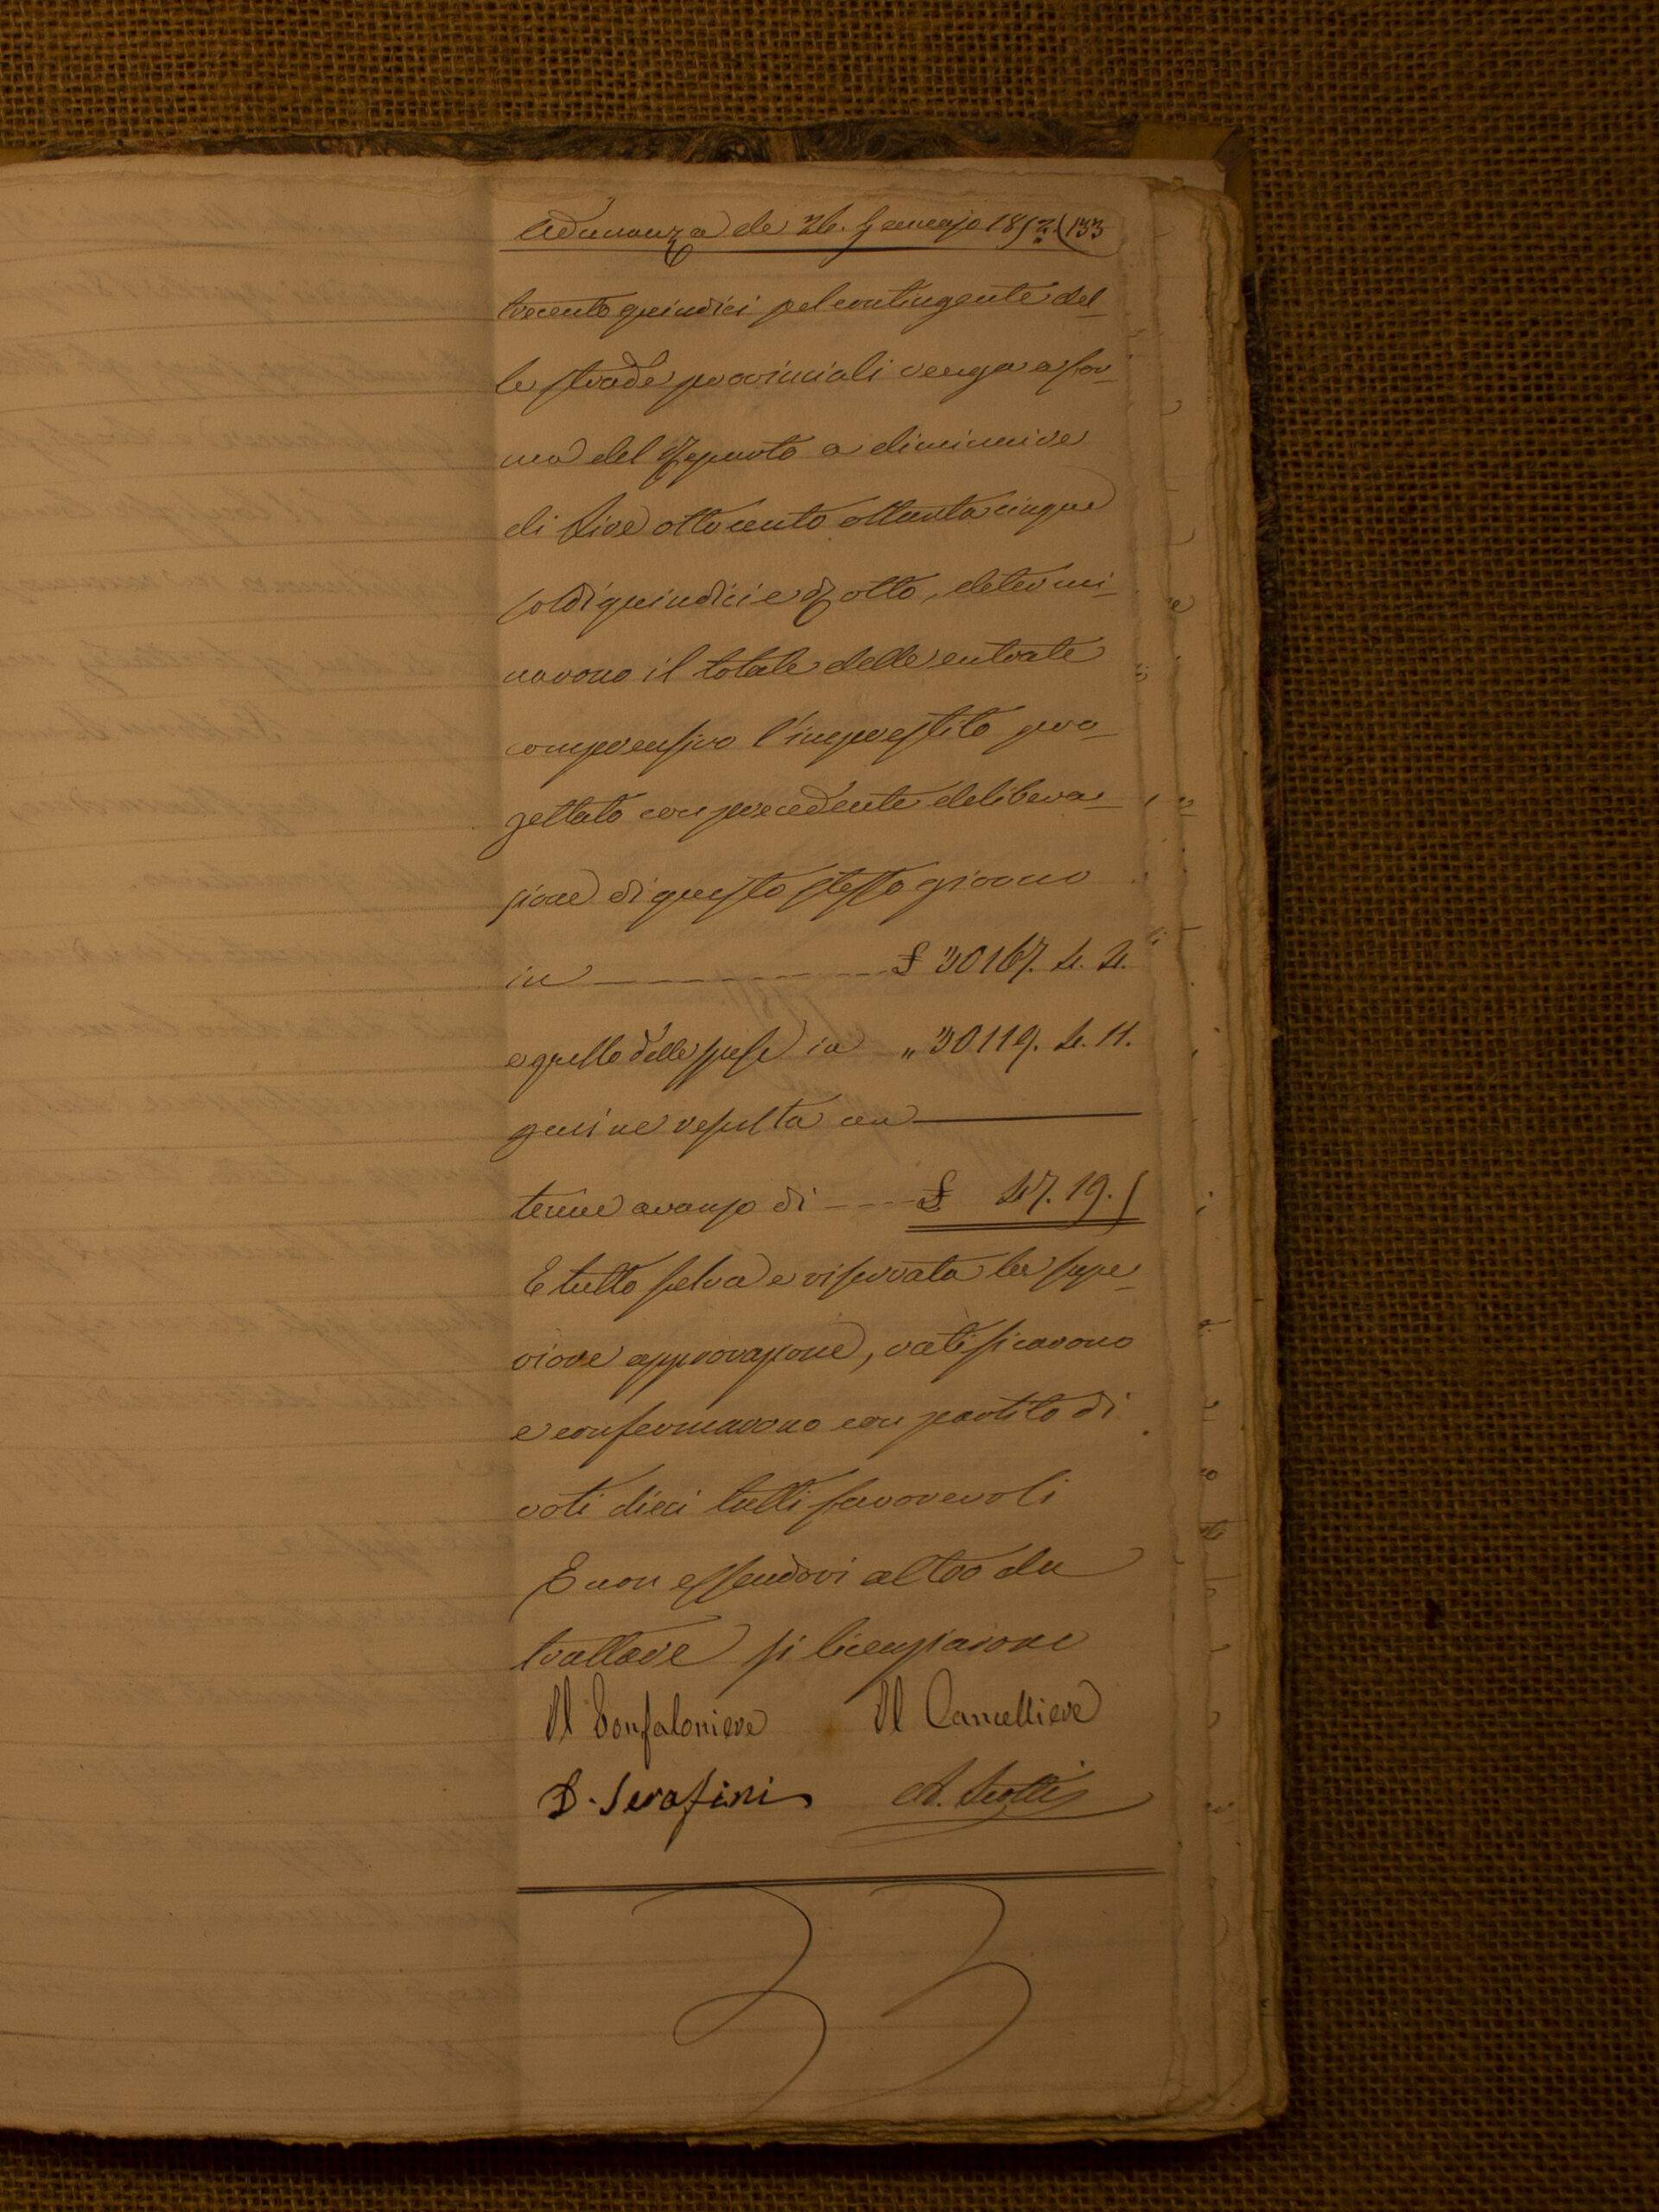 Adunanza de 26. Gennajo 1852. (133
trecento quindici pel contingente del_
le strade provinciali venga a for_
ma del Reparto a diminuire
di Lire ottocento ottanta cinque
soldi quindici e d otto, determi_
narono il totale delle entrate
comprensivo l'imprestito pro_
gettato con precedente delibera_
zione di questo stesso giorno
in ———— £ 30167. 4. 4.
e quello delle spese in „ 30119. 4. 11.
quine resulta un ————
tenue avanzo di ---- £ 47. 19. 5
E tutto salva e riservata la supe_
riore approvazione, ratificarono
e confermarono con partito di
voti dieci tutti favorevoli
E non essendovi altro da
trattare si licenziarono
Il Gonfaloniere Il Cancelliere
D. Serafini